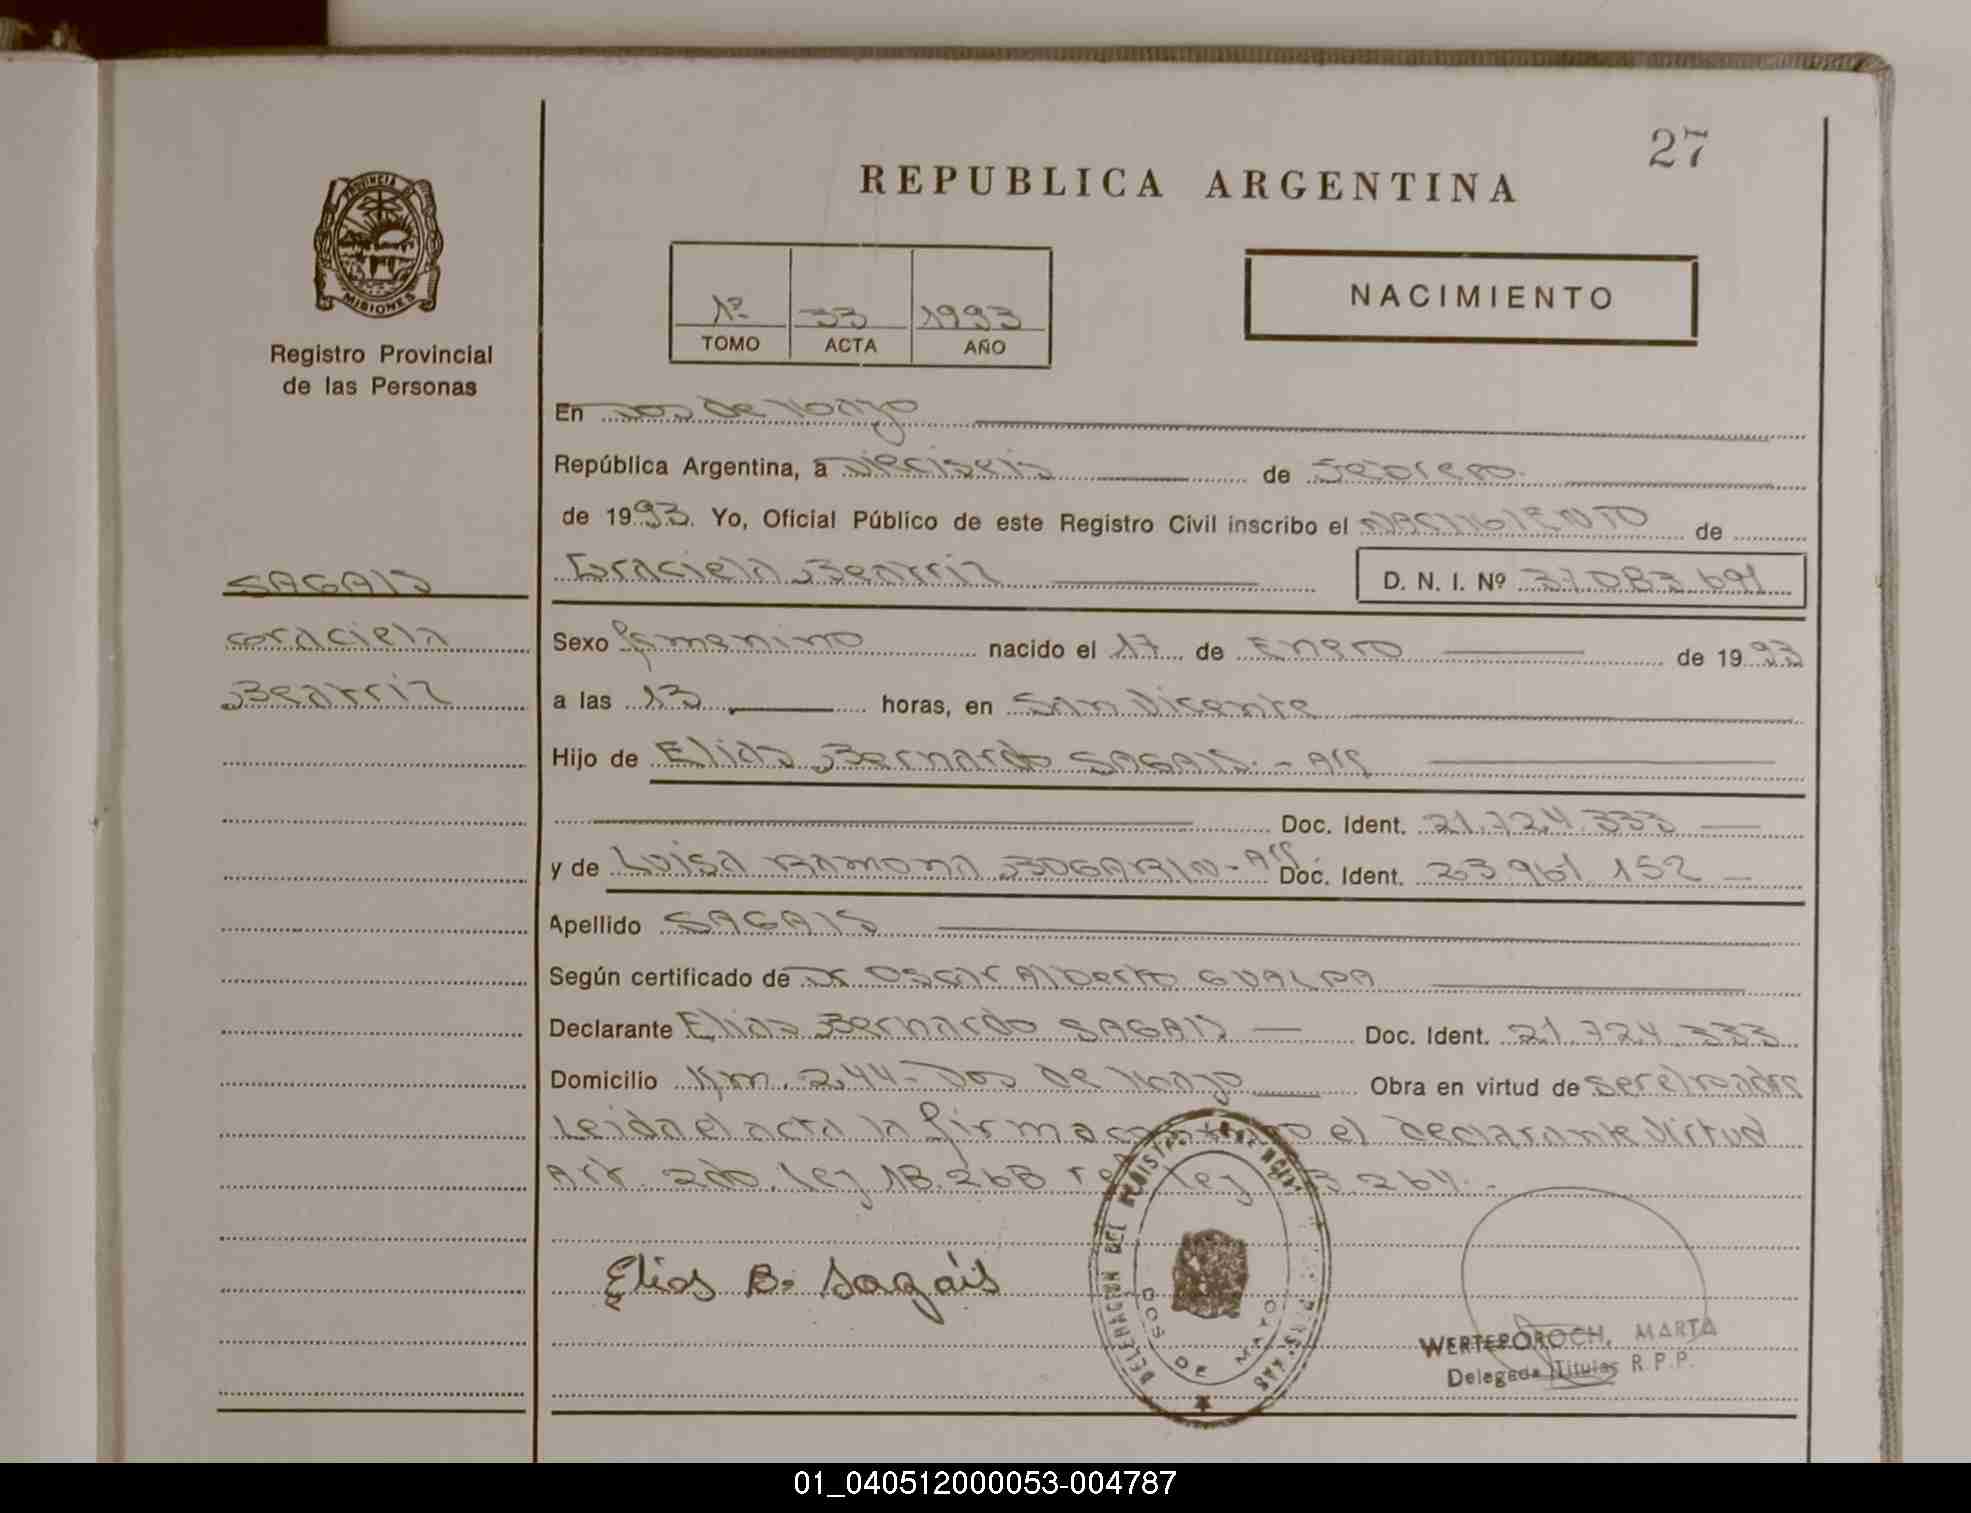 27
PROVINCIA DE
MISIONES
Registro Provincial
de las Personas
SAGAIS
Graciela
Beatriz
REPUBLICA ARGENTINA
1º 33 1993
TOMO ACTA AÑO
NACIMIENTO
En Dos de Mayo
República Argentina, a Dieciseis de Febrero
de 1993. Yo, Oficial Público de este Registro Civil inscribo el NACIMIENTO de
Graciela Beatriz D. N. I. Nº 37.083.691
Sexo femenino nacido el 17 de Enero de 1993
a las 13 horas, en San Vicente
Hijo de Elias Bernardo SAGAIS - Arg
Doc. Ident. 21.724.333
y de Luisa Ramona BOGARIN - Arg Doc. Ident. 23 961 152
Apellido SAGAIS
Según certificado de Dr Oscar Alberto GUALPA
Declarante Elias Bernardo SAGAIS Doc. Ident. 21.724.333
Domicilio Km. 244 - Dos de Mayo Obra en virtud de ser el padre
Leida el acta la firma conmigo el declarante Virtud
Art. 2do. Ley 18.268 ref Ley 23.264.-
Elias B. Sagais
DELEGACION DEL REGISTRO PROVINCIAL DE LAS PERSONAS
DOS DE MAYO
WERTEPOROCH, MARTA
Delegada Titular R.P.P.
01_040512000053-004787